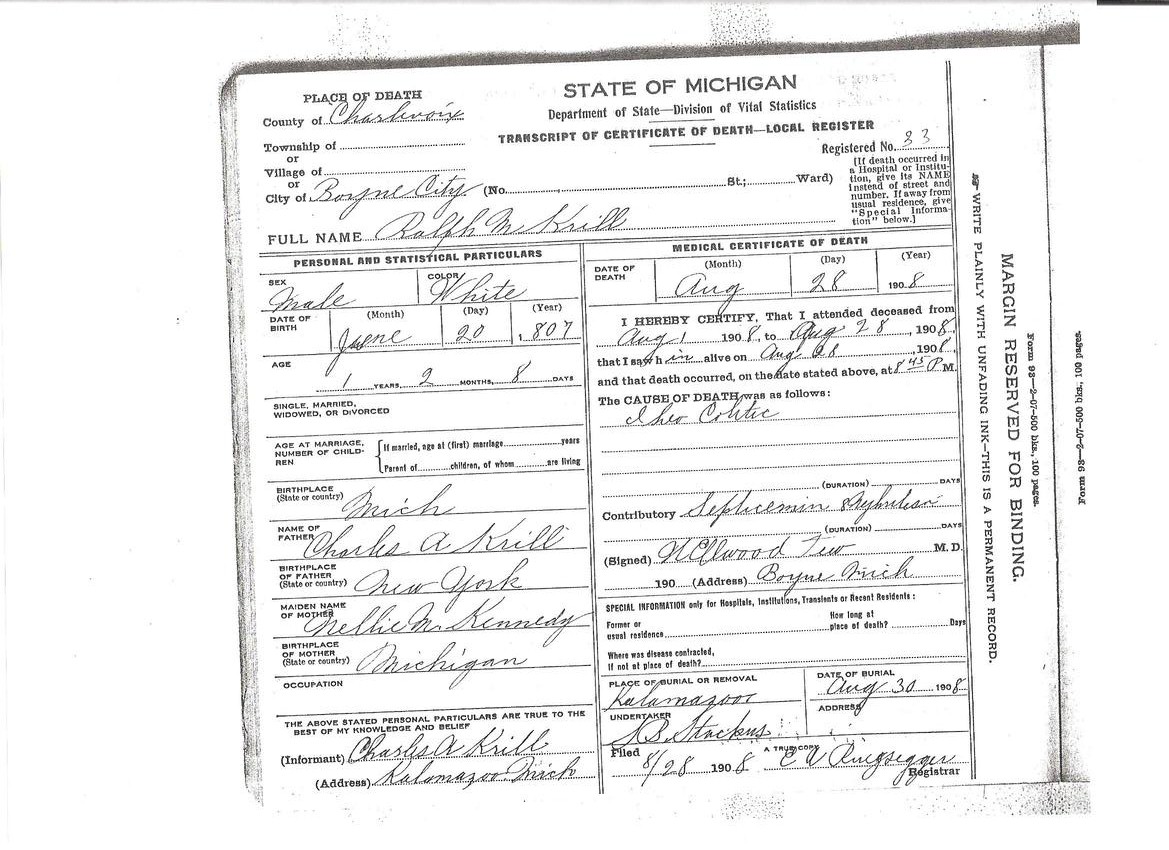 STATE OF MICHIGAN
Department of State—Division of Vital Statistics
TRANSCRIPT OF CERTIFICATE OF DEATH—LOCAL REGISTER
PLACE OF DEATH
County of Charlevoix
Township of
or
Village of
or
City of Boyne City (No. St.; Ward)
Registered No. 33
[If death occurred in
a Hospital or Institu-
tion, give its NAME
instead of street and
number. If away from
usual residence, give
"Special Informa-
tion" below.]
FULL NAME Ralph M Krill
PERSONAL AND STATISTICAL PARTICULARS
SEX
Male
COLOR
White
DATE OF
BIRTH
(Month) (Day) (Year)
June 20 , 1907
AGE
1 YEARS, 2 MONTHS, 8 DAYS
SINGLE, MARRIED,
WIDOWED, OR DIVORCED
AGE AT MARRIAGE,
NUMBER OF CHILD-
REN
If married, age at (first) marriage years
Parent of children, of whom are living
BIRTHPLACE
(State or country)
Mich
NAME OF
FATHER
Charles A Krill
BIRTHPLACE
OF FATHER
(State or country)
New York
MAIDEN NAME
OF MOTHER
Nellie M. Kennedy
BIRTHPLACE
OF MOTHER
(State or country)
Michigan
OCCUPATION
THE ABOVE STATED PERSONAL PARTICULARS ARE TRUE TO THE
BEST OF MY KNOWLEDGE AND BELIEF
(Informant) Charles A Krill
(Address) Kalamazoo Mich
MEDICAL CERTIFICATE OF DEATH
DATE OF
DEATH
(Month) (Day) (Year)
Aug 28 1908
I HEREBY CERTIFY, That I attended deceased from
Aug 1 1908, to Aug 28, 1908,
that I saw h im alive on Aug 28, 1908,
and that death occurred, on the date stated above, at 8 45 P M.
The CAUSE OF DEATH was as follows:
Colitic
(DURATION) DAYS
Contributory
(DURATION) DAYS
(Signed) Ellwood Tew M. D.
190 (Address) Boyne Mich
SPECIAL INFORMATION only for Hospitals, Institutions, Transients or Recent Residents:
Former or
usual residence
How long at
place of death? Days
Where was disease contracted,
if not at place of death?
PLACE OF BURIAL OR REMOVAL
Kalamazoo
DATE OF BURIAL
Aug 30 1908
UNDERTAKER
S B Stackus
ADDRESS
Filed 8/28 1908
A TRUE COPY
Registrar
WRITE PLAINLY WITH UNFADING INK—THIS IS A PERMANENT RECORD.
MARGIN RESERVED FOR BINDING.
Form 98—2-07-500 bks., 100 pages.
Form 98—2-07-500 bks., 100 pages.